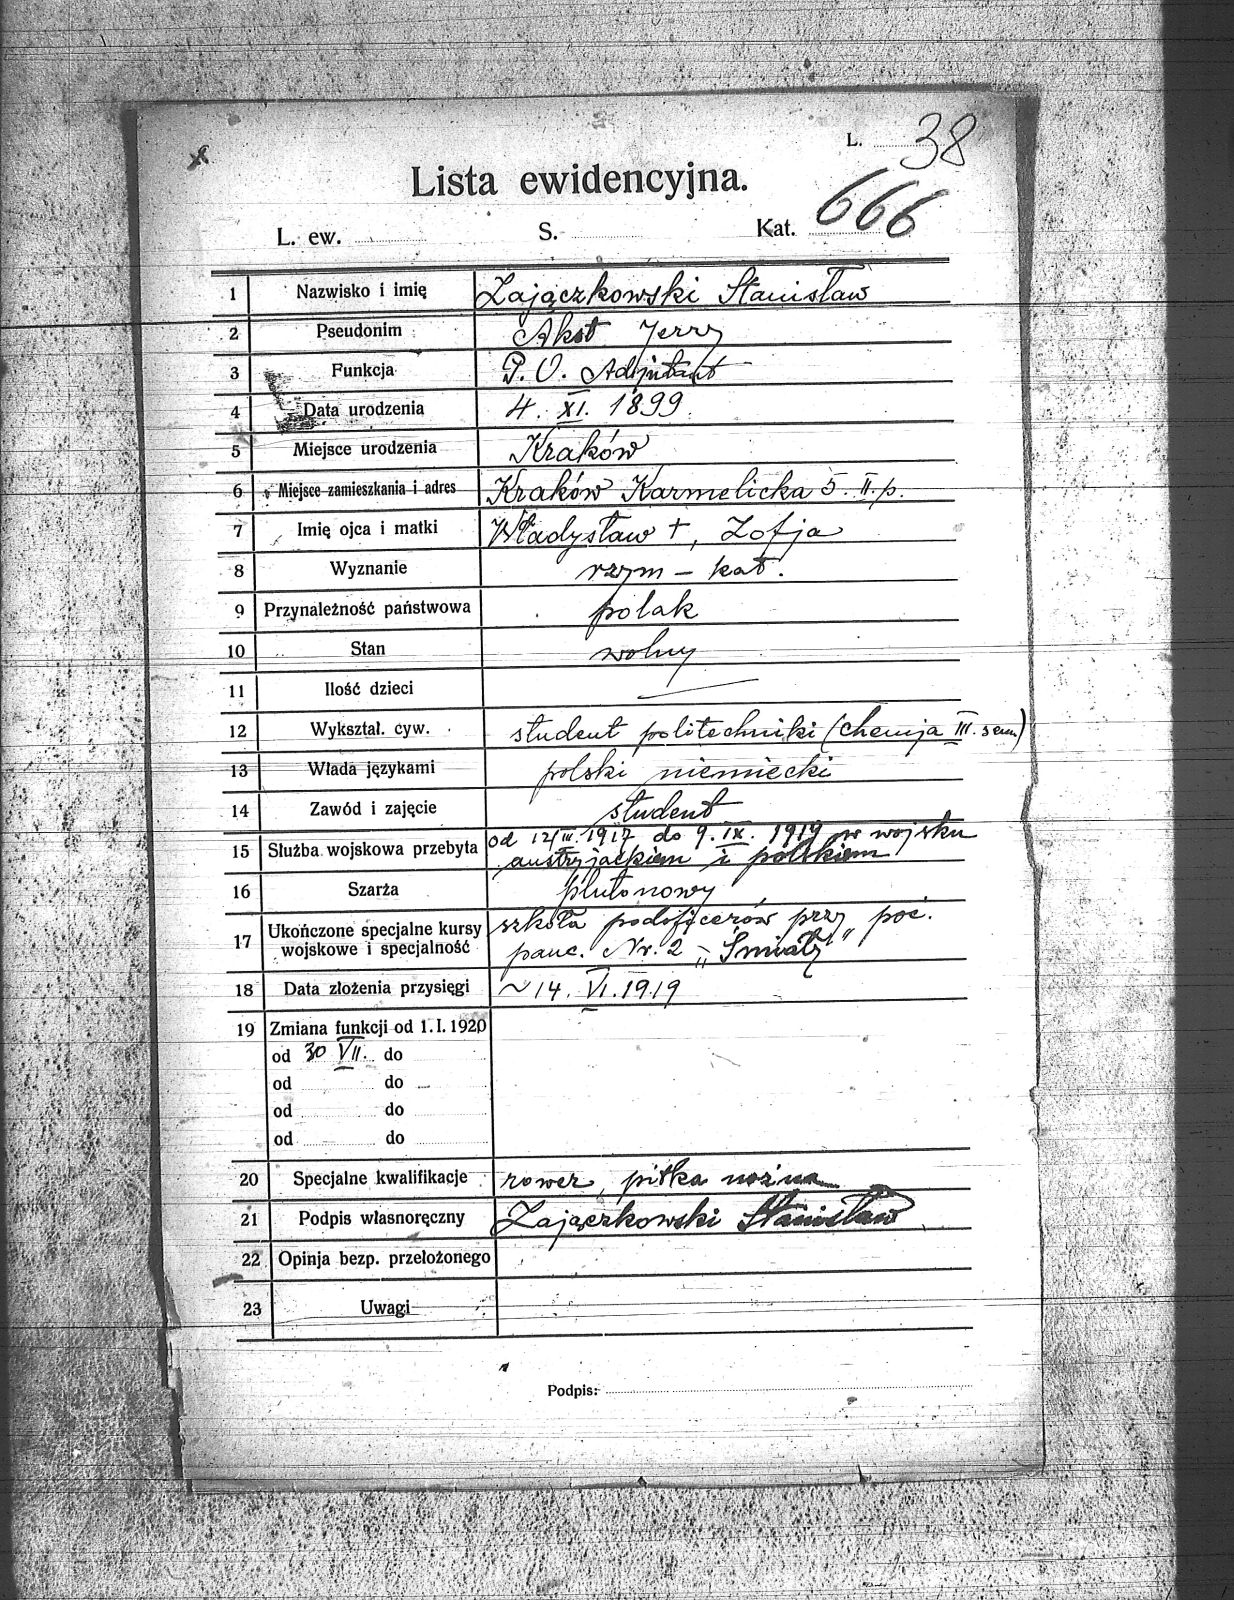 L. 38
Lista ewidencyjna.
L. ew. S. Kat. 666
1 Nazwisko i imię Zajączkowski Stanisław
2 Pseudonim Akst Jerzy
3 Funkcja P. O. Adjutant
4 Data urodzenia 4. XI. 1899.
5 Miejsce urodzenia Kraków
6 Miejsce zamieszkania i adres Kraków Karmelicka 5. II. p.
7 Imię ojca i matki Władysław +, Zofja
8 Wyznanie rzym – kat.
9 Przynależność państwowa polak
10 Stan wolny
11 Ilość dzieci —
12 Wykształ. cyw. student politechniki (chemja III. sem)
13 Włada językami polski niemiecki
14 Zawód i zajęcie student
15 Służba wojskowa przebyta od 12/III. 1917 do 9. IX. 1919 w wojsku
austryjackiem i polskiem
16 Szarża plutonowy
17 Ukończone specjalne kursy szkoła podoficerów przy poc.
wojskowe i specjalność panc. Nr. 2 „Śmiały”
18 Data złożenia przysięgi ~ 14. VI. 1919
19 Zmiana funkcji od 1. I. 1920
od 30 VII. do
od do
od do
od do
20 Specjalne kwalifikacje rower, piłka nożna
21 Podpis własnoręczny Zajączkowski Stanisław
22 Opinja bezp. przełożonego
23 Uwagi
Podpis: